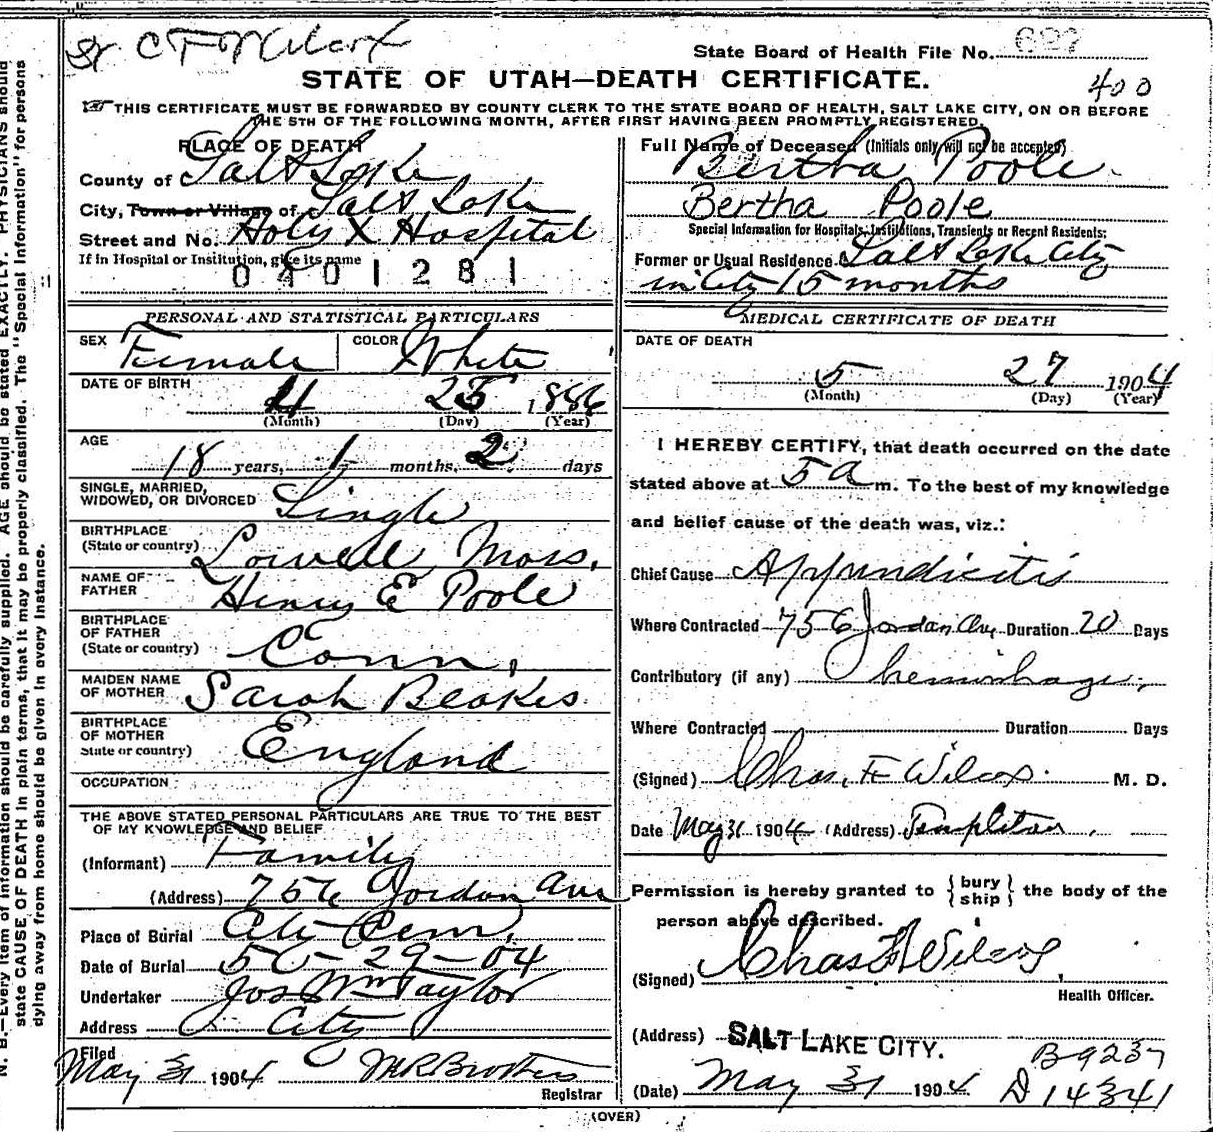 Dr C F Wilcox
State Board of Health File No. 682
STATE OF UTAH—DEATH CERTIFICATE.
400
THIS CERTIFICATE MUST BE FORWARDED BY COUNTY CLERK TO THE STATE BOARD OF HEALTH, SALT LAKE CITY, ON OR BEFORE
THE 5TH OF THE FOLLOWING MONTH, AFTER FIRST HAVING BEEN PROMPTLY REGISTERED.
PLACE OF DEATH
County of Salt Lake
City, Town or Village of Salt Lake
Street and No. Holy X Hospital
If in Hospital or Institution, give its name
0401281
Full Name of Deceased (Initials only will not be accepted)
Bertha Poole
Bertha Poole
Special Information for Hospitals, Institutions, Transients or Recent Residents:
Former or Usual Residence Salt Lake City
in City 15 months
PERSONAL AND STATISTICAL PARTICULARS
SEX Female COLOR White
DATE OF BIRTH
4 25 1886
(Month) (Day) (Year)
AGE
18 years, 1 months, 2 days
SINGLE, MARRIED,
WIDOWED, OR DIVORCED Single
BIRTHPLACE
(State or country) Lowell, Mass.
NAME OF
FATHER Henry E Poole
BIRTHPLACE
OF FATHER
(State or country) Conn,
MAIDEN NAME
OF MOTHER Sarah Beakes
BIRTHPLACE
OF MOTHER
State or country) England
OCCUPATION
THE ABOVE STATED PERSONAL PARTICULARS ARE TRUE TO THE BEST
OF MY KNOWLEDGE AND BELIEF
(Informant) Family
(Address) 756 Jordan Ave
Place of Burial City Cem,
Date of Burial 5-29-04
Undertaker Jos Wm Taylor
Address City
Filed
May 31 1904 MR Brothers
Registrar
MEDICAL CERTIFICATE OF DEATH
DATE OF DEATH
5 27 1904
(Month) (Day) (Year)
I HEREBY CERTIFY, that death occurred on the date
stated above at 5 a m. To the best of my knowledge
and belief cause of the death was, viz.:
Chief Cause Appendicitis
Where Contracted 756 Jordan Ave Duration 20 Days
Contributory (if any) hemorrhage,
Where Contracted Duration Days
(Signed) Chas. F Wilcox. M. D.
Date May 31 1904 (Address) Templeton.
Permission is hereby granted to { bury ship } the body of the
person above described.
(Signed) Chas F Wilcox,
Health Officer.
(Address) SALT LAKE CITY.
B 9237
(Date) May 31 1904 D 14341
(OVER)
N. B.—Every item of information should be carefully supplied. AGE should be stated EXACTLY. PHYSICIANS should
state CAUSE OF DEATH in plain terms, that it may be properly classified. The "Special Information" for persons
dying away from home should be given in every instance.